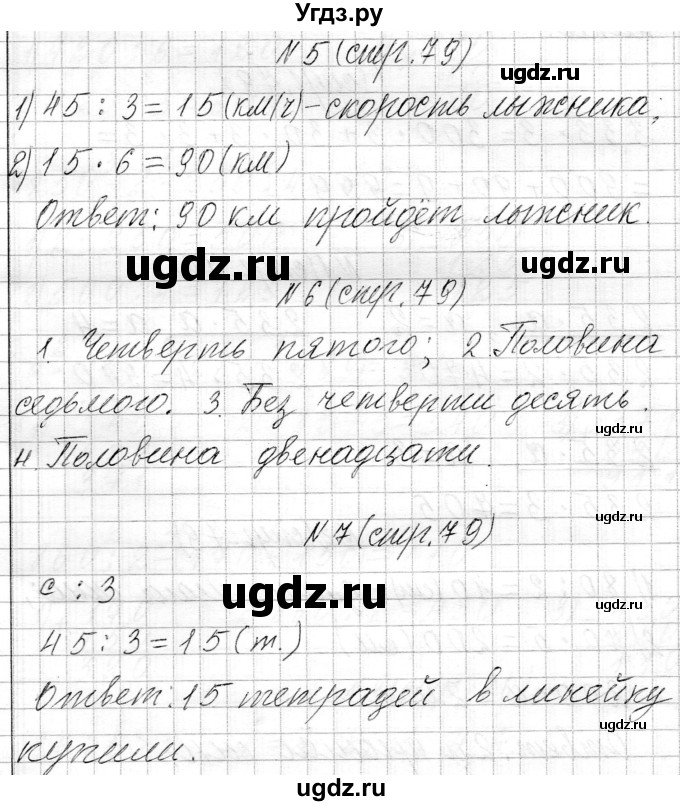 Угдз.ру
N 5 (стр. 79)
ugdz.ru
1) 45 : 3 = 15 (км/ч) - скорость лыжника;
2) 15 · 6 = 90 (км)
ugdz.ru
Ответ: 90 км пройдёт лыжник.
ugdz.ru
ugdz.ru
N 6 (стр. 79)
1. Четверть пятого; 2. Половина
ugdz.ru
седьмого. 3. Без четверти десять.
ugdz.ru
4. Половина двенадцати.
ugdz.ru
N 7 (стр. 79)
с : 3
ugdz.ru
ugdz.ru
45 : 3 = 15 (т.)
Ответ: 15 тетрадей в линейку
ugdz.ru
купили.
ugdz.ru
ugdz.ru